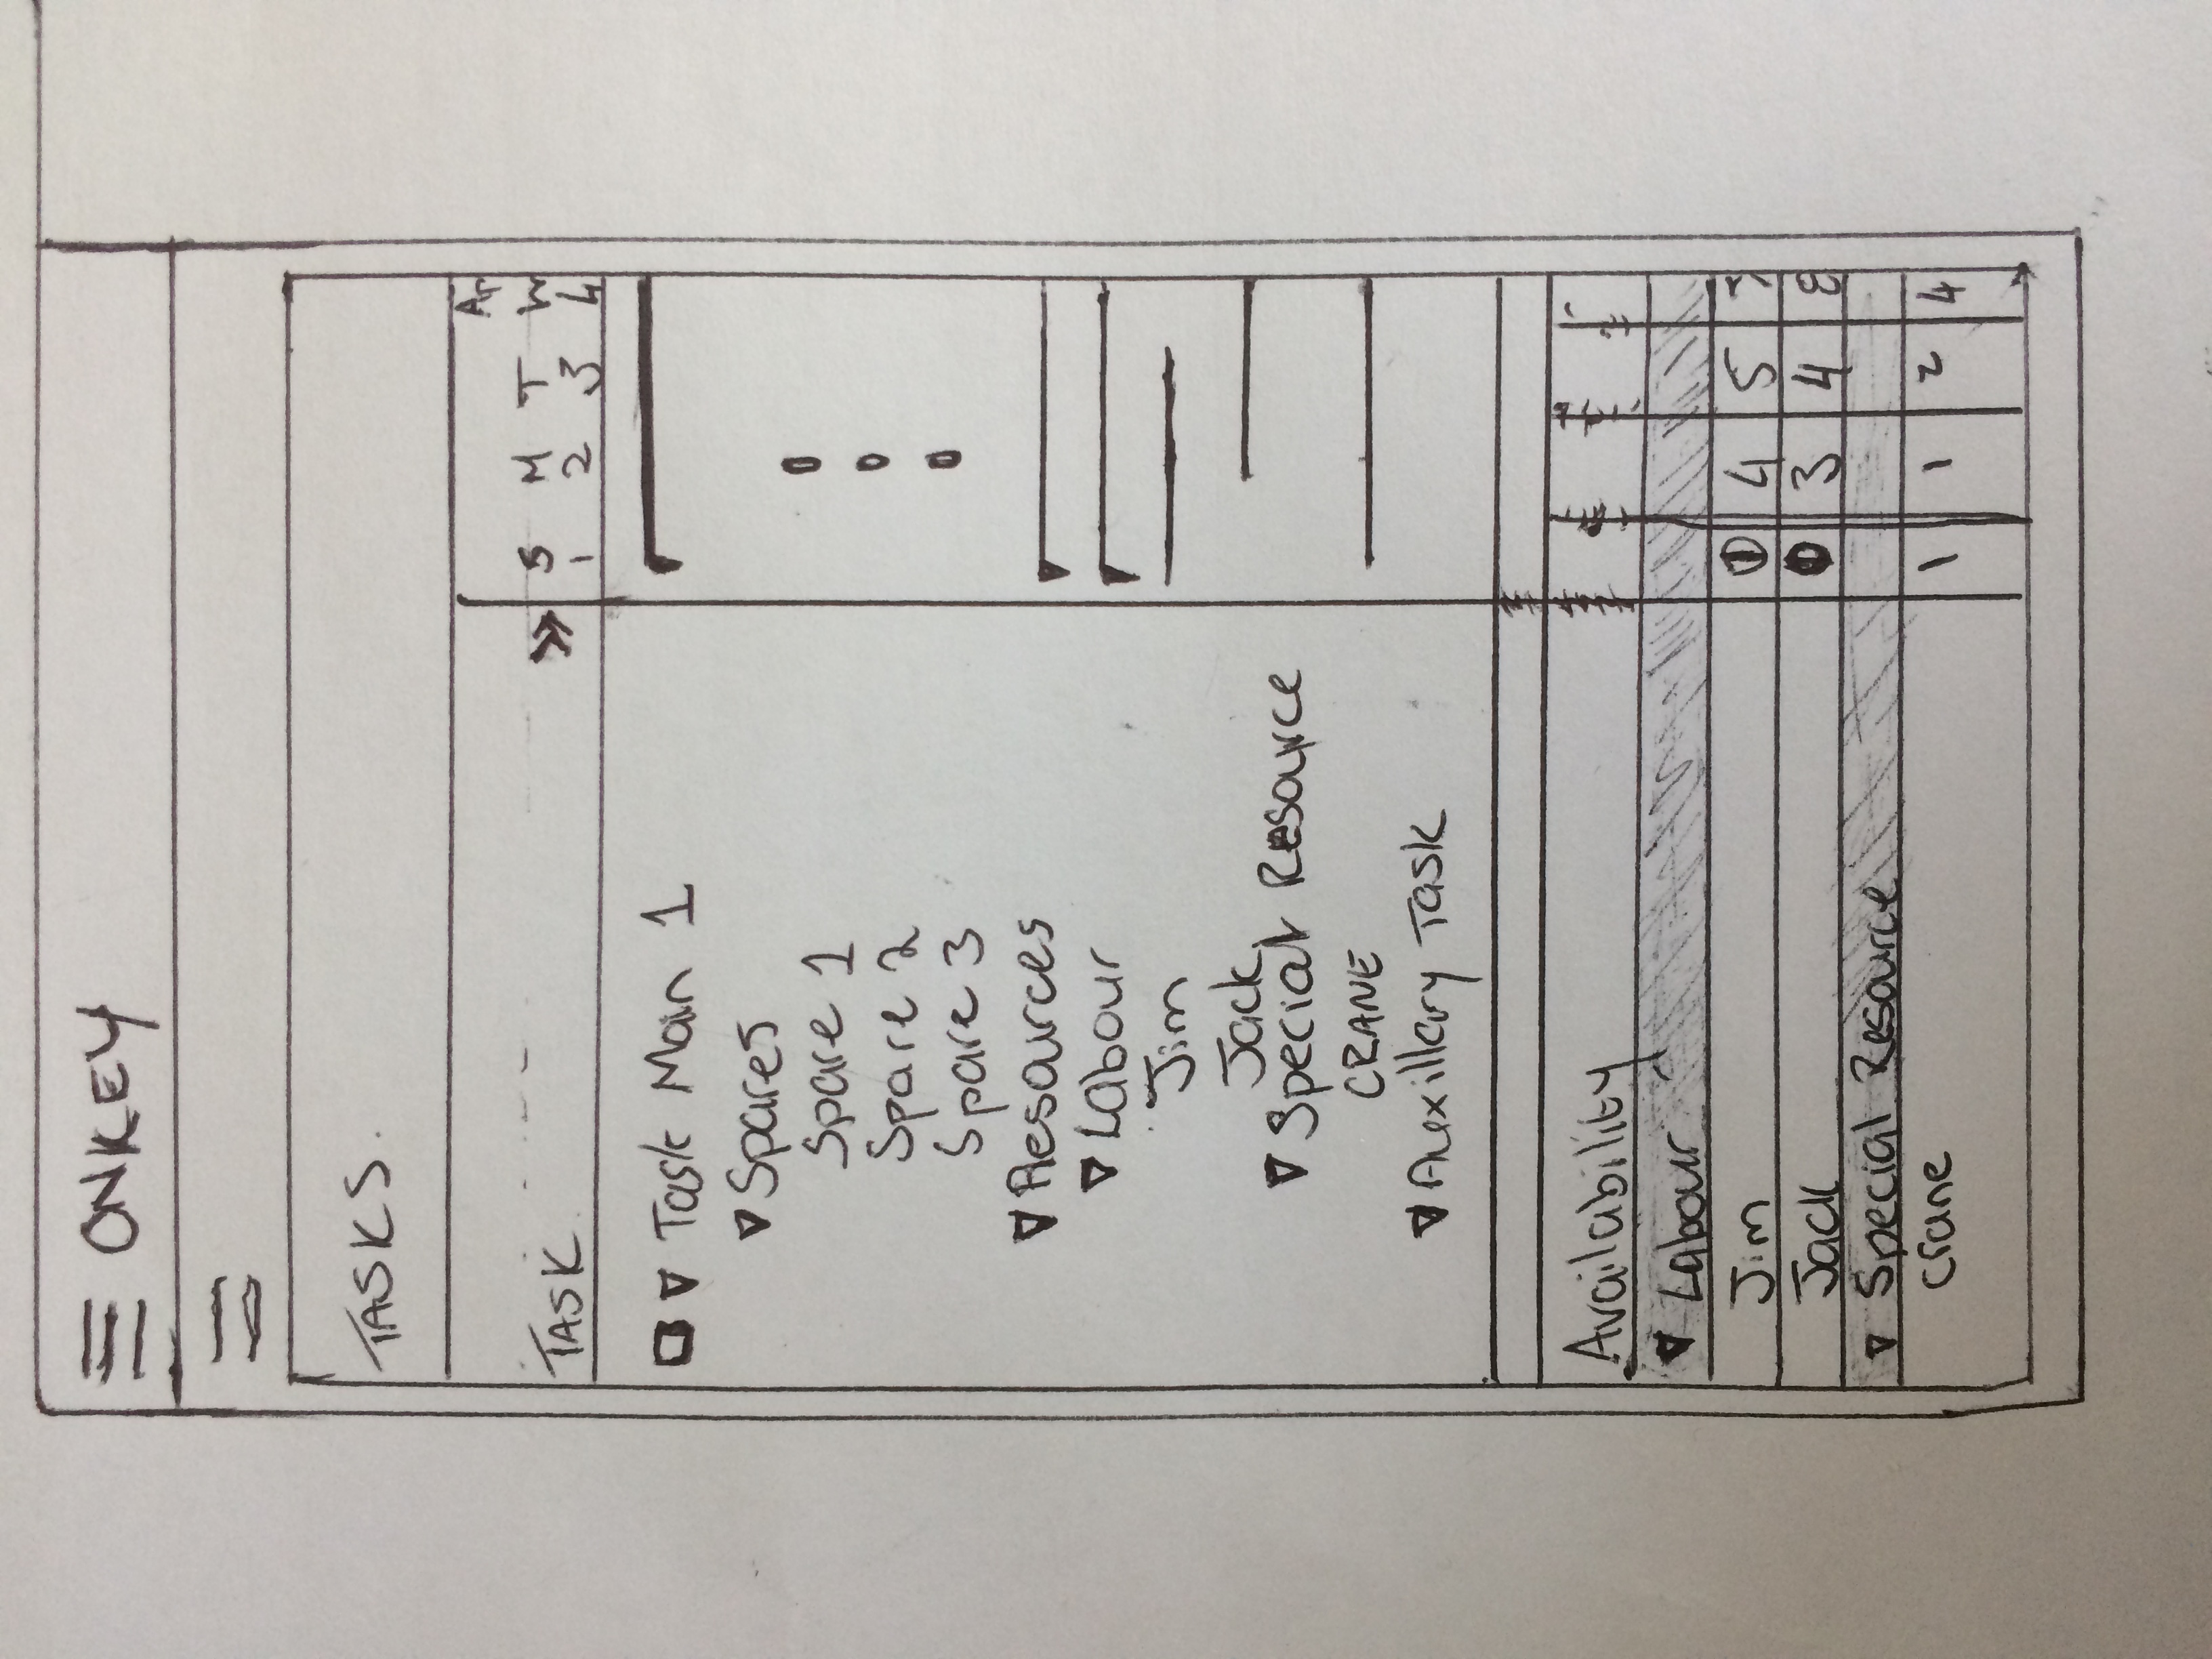 ONKEY
TASKS.
Ap
S M T W
TASK 1 2 3 4
Task Main 1
Spares
Spare 1
Spare 2
Spare 3
Resources
Labour
Jim
Jack
Special Resource
CRANE
Auxillary Task
Availability
Labour
Jim 4 5
Jack 3 4 8
Special Resource
crane 1 1 2 4